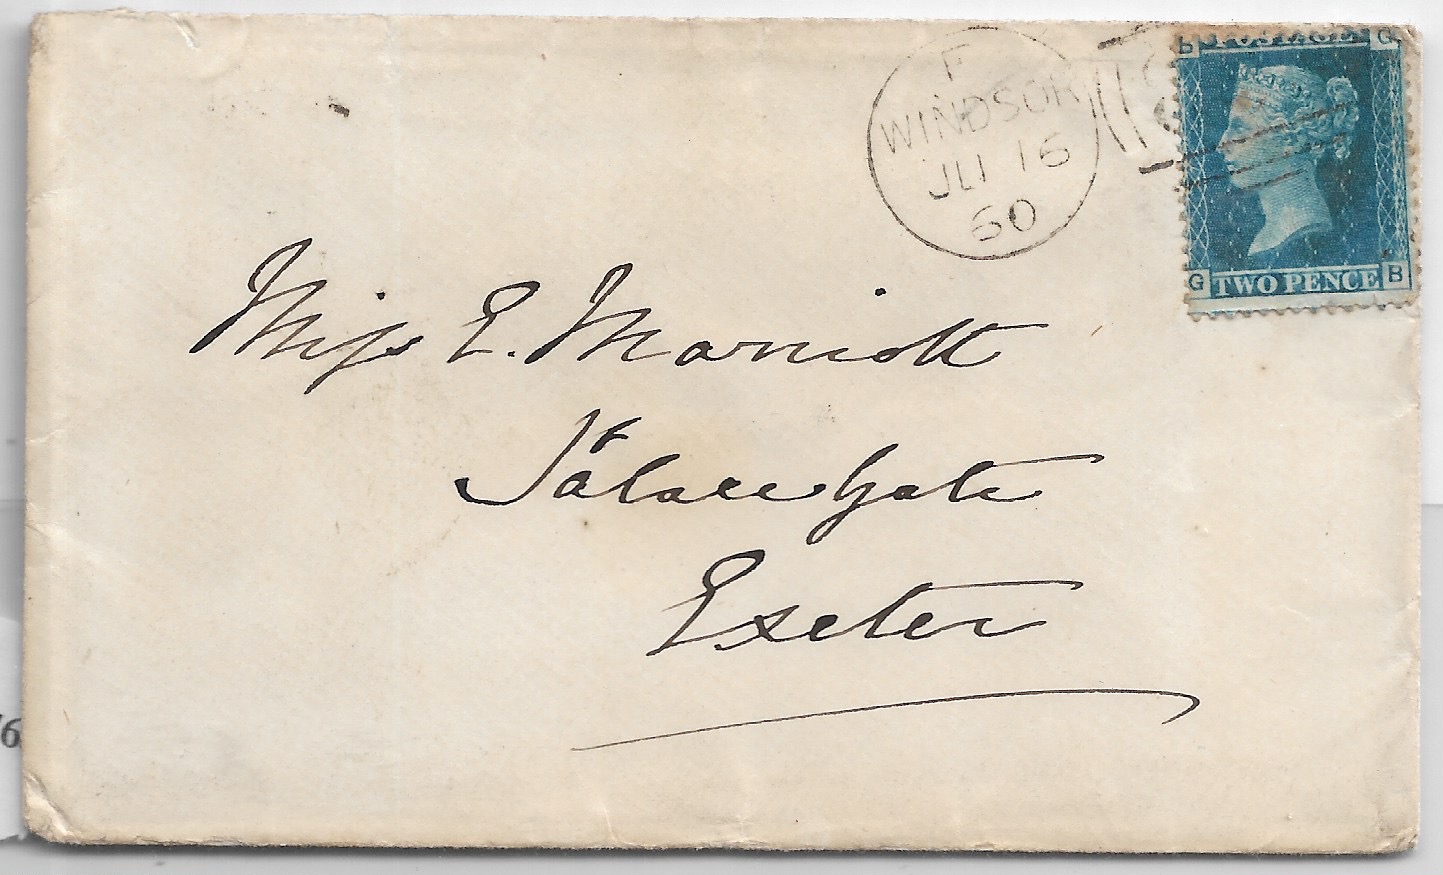 F
WINDSOR
JU 16
60
B POSTAGE G
G TWO PENCE B
Miss E. Marriott
Palace Gate
Exeter
6